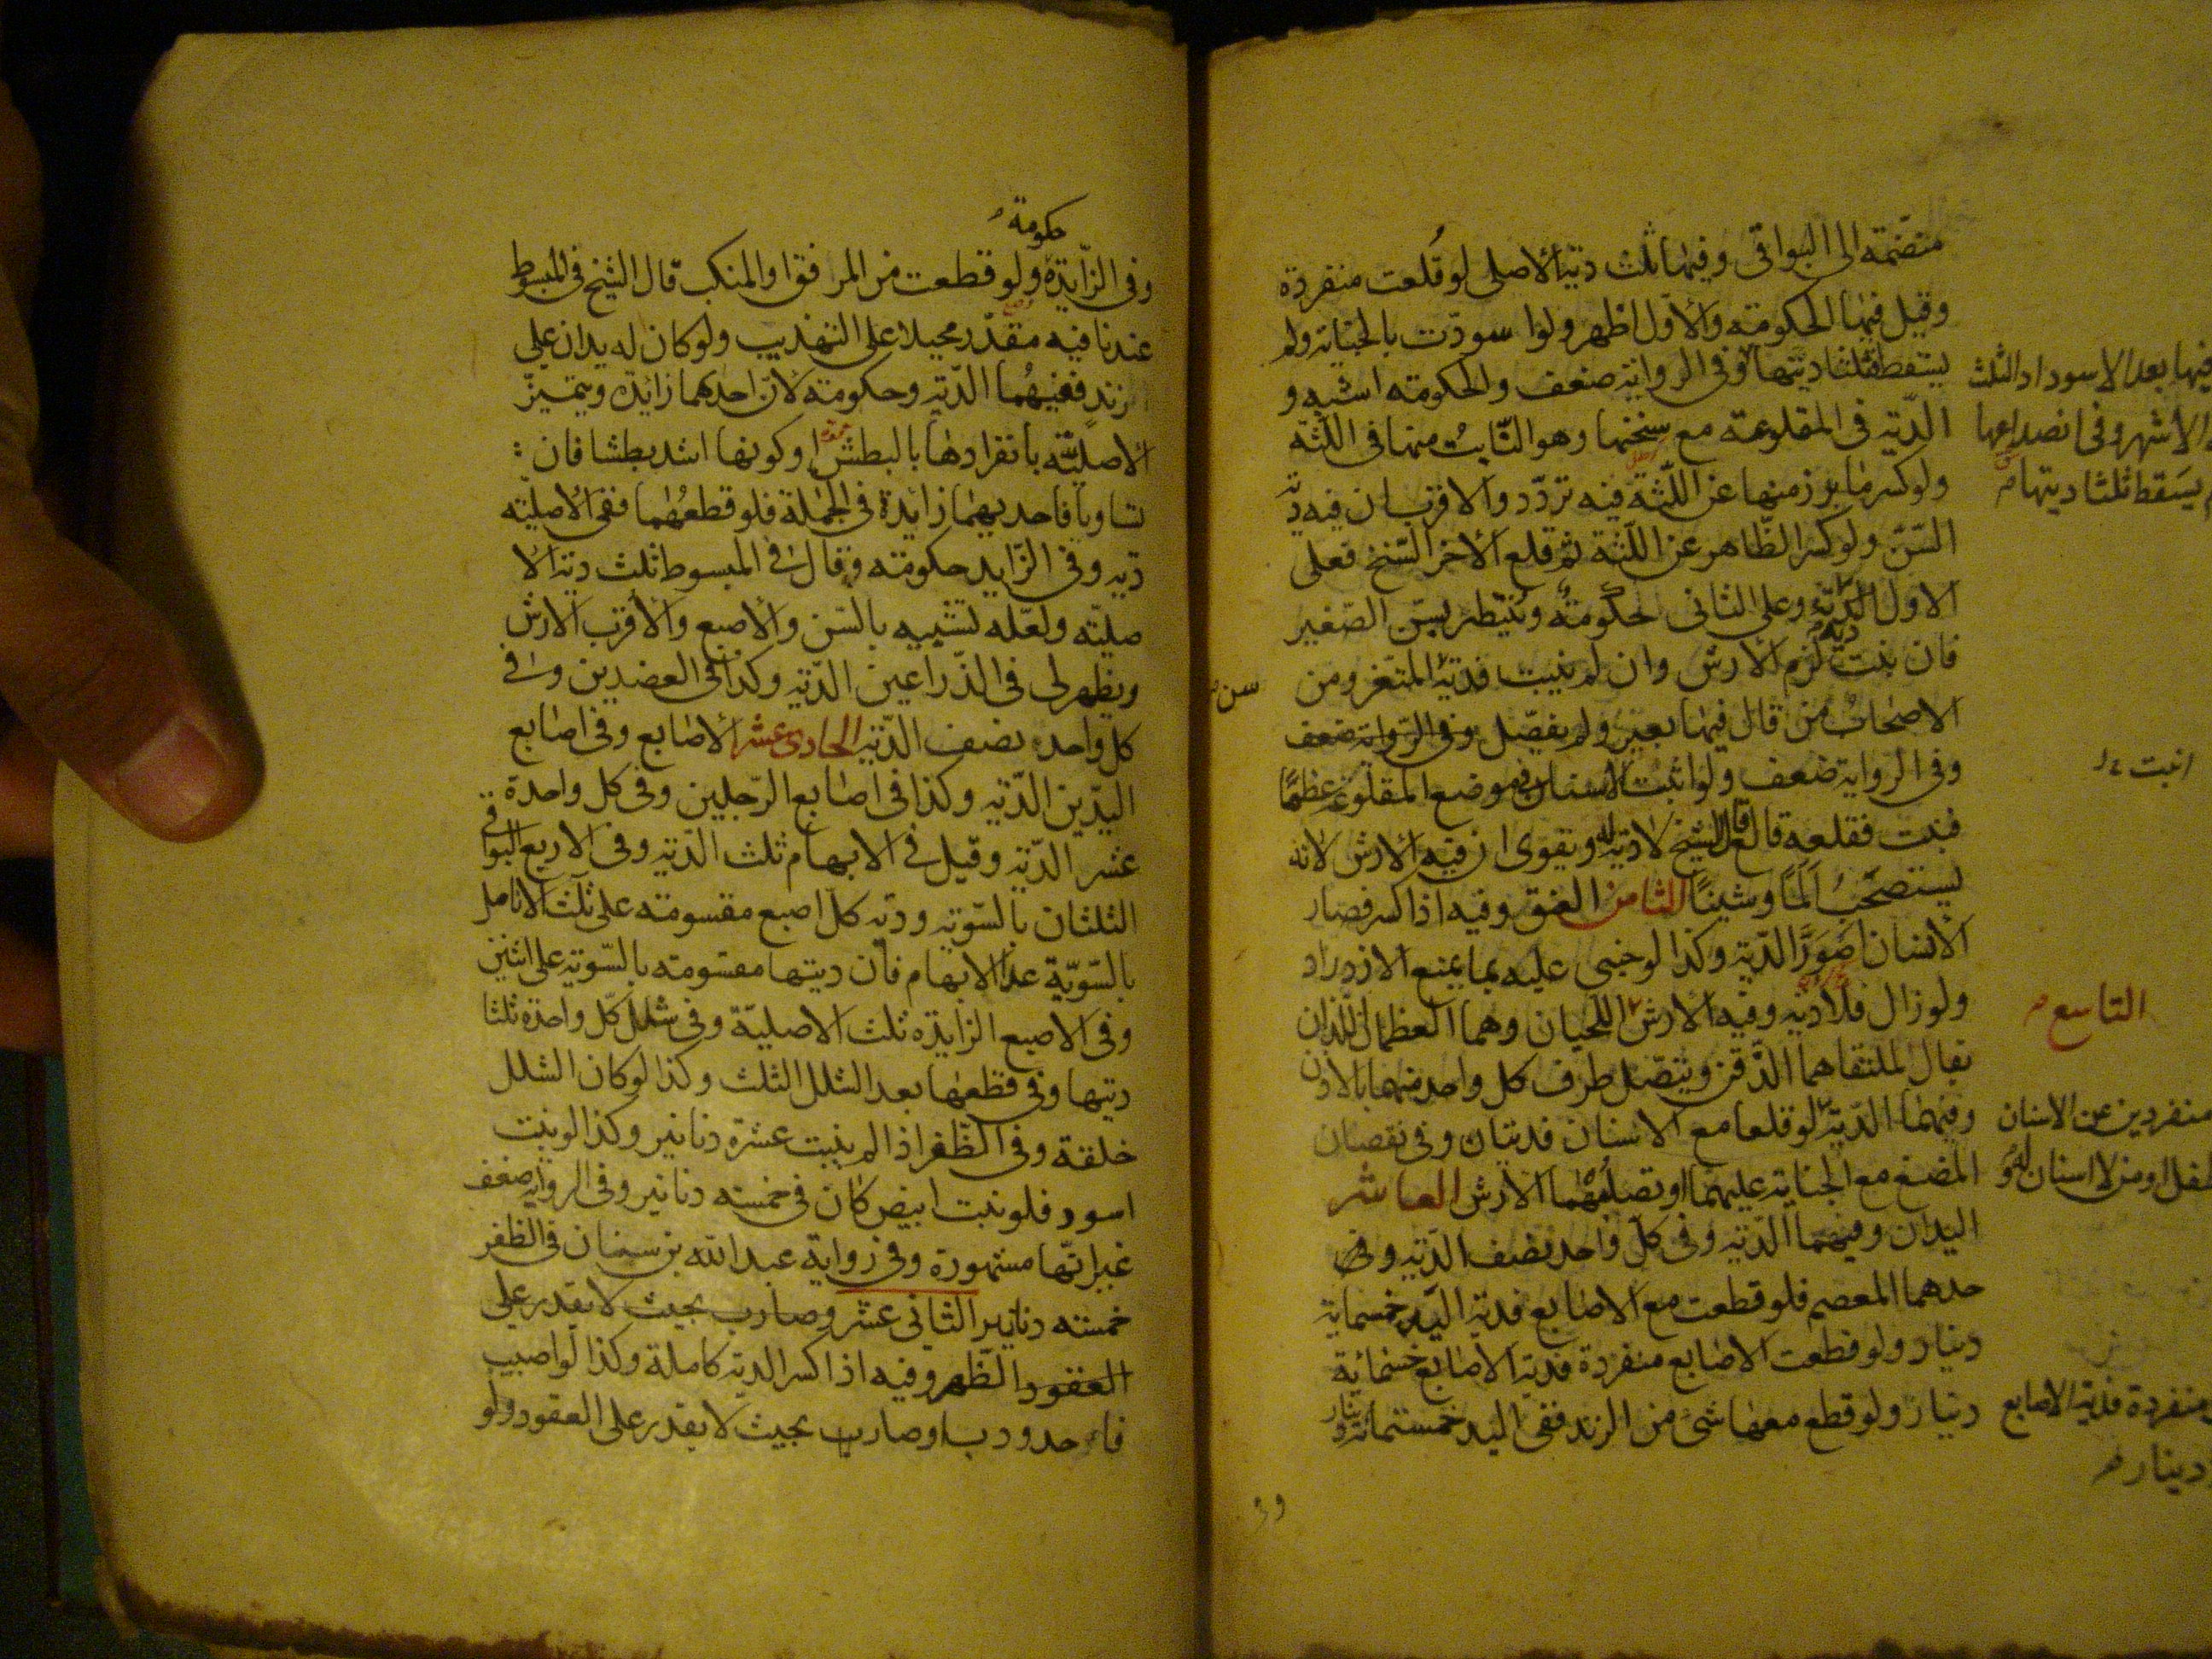 منضمة الى البواقى وفيها ثلث دية الاصلى لو قلعت منفردة
وقيل فيها الحكومة والاول اظهر ولو اسودت بالجناية ولم
يسقط فثلثا ديتها وفى الرواية ضعف والحكومة اشبه و
فيها بعد الاسوداد الثلث
الدية فى المقلوعة مع سنخها وهو الثابت منها فى اللثة
الاشهر وفى انصداعها
ولو كسر ما برز منها عن اللثة فيه تردد والاقرب ان فيه دية
يسقط ثلثا ديتها
السن ولو كسر الظاهر عن اللثة ثم قلع الاخر السنخ فعلى
الاول الدية وعلى الثانى حكومة وينتظر بسن الصغير
فان نبت لزم الارش وان لم ينبت فدية المتغر ومن
سن
الاصحاب من قال فيها بعير ولم يفصل وفى الرواية ضعف
وفى الرواية ضعف ولو اثبت الانسان فى موضع المقلوعة عظما
انبت
فنبت فقلعه قالع قال الشيخ لا دية له ويقوى ان فيه الارش لانه
يستصحب الما وشينا الثامن العنق وفيه اذا كسر فصار
الانسان اصور الدية وكذا لو جنى عليه بما يمنع الازدراد
ولو زال فلا دية وفيه الارش اللحيان وهما العظمان اللذان
التاسع
يقال لملتقاهما الذقن ويتصل طرف كل واحد منهما بالاذن
وفيهما الدية لو قلعا مع الاسنان فديتان وفى نقصان
منفردين عن الاسنان
المضغ مع الجناية عليهما او تصلبهما الارش العاشر
طفل او من لا اسنان له و
اليدان وفيهما الدية وفى كل واحد نصف الدية و
حدهما المعصم فلو قطعت مع الاصابع فدية اليد خمسماية
دينار ولو قطعت الاصابع منفردة فدية الاصابع خمسمائة
دينار ولو قطع معها شئ من الزند ففى اليد خمسمائة دينار
منفردة فدية الاصابع
دينار
حكومة
وفى الزايدة ولو قطعت من المرفق او المنكب قال الشيخ فى المبسوط
عندنا فيه مقدر محيلا على التهذيب ولو كان له يدان على
زند ففيهما الدية وحكومة لان احدهما زايدة ويتميز
الاصلية بانفرادها بالبطش او كونها اشد بطشا فان
تساويا فاحديهما زايدة فى الجملة فلو قطعهما ففى الاصلية
دية وفى الزايد حكومة وقال فى المبسوط ثلث دية الا
صلية ولعله لتشبيه بالسن والاصبع والاقرب الارش
ويظهر لى فى الذراعين الدية وكذا فى العضدين وفى
كل واحد نصف الدية الحادى عشر الاصابع وفى اصابع
اليدين الدية وكذا فى اصابع الرجلين وفى كل واحدة
عشر الدية وقيل فى الابهام ثلث الدية وفى الاربع البواقى
الثلثان بالسوية ودية كل اصبع مقسومة على ثلث الانامل
بالسوية عدا الابهام فان ديتها مقسومة بالسوية على اثنين
وفى الاصبع الزايدة ثلث الاصلية وفى شلل كل واحدة ثلثا
ديتها وفى قطعها بعد الشلل الثلث وكذا لو كان الشلل
خلقة وفى الظفر اذا لم ينبت عشرة دنانير وكذا لو نبت
اسود فلو نبت ابيض كان فى خمسة دنانير وفى الرواية ضعف
غير انها مشهورة وفى رواية عبد الله بن سنان فى الظفر
خمسة دنانير الثانى عشر وصار بحيث لا يقدر على
العقود الظهر وفيه اذا كسر الدية كاملة وكذا لو اصيب
فاحدودب او صار بحيث لا يقدر على العقود ولو